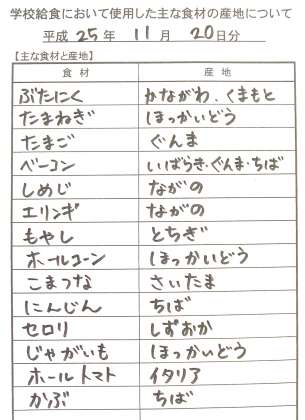 学校給食において使用した主な食材の産地について
平成 25 年 11 月 20 日分
【主な食材と産地】
食材 産地
ぶたにく かながわ、くまもと
たまねぎ ほっかいどう
たまご ぐんま
ベーコン いばらき・ぐんま・ちば
しめじ ながの
エリンギ ながの
もやし とちぎ
ホールコーン ほっかいどう
こまつな さいたま
にんじん ちば
セロリ しずおか
じゃがいも ほっかいどう
ホールトマト イタリア
かぶ ちば